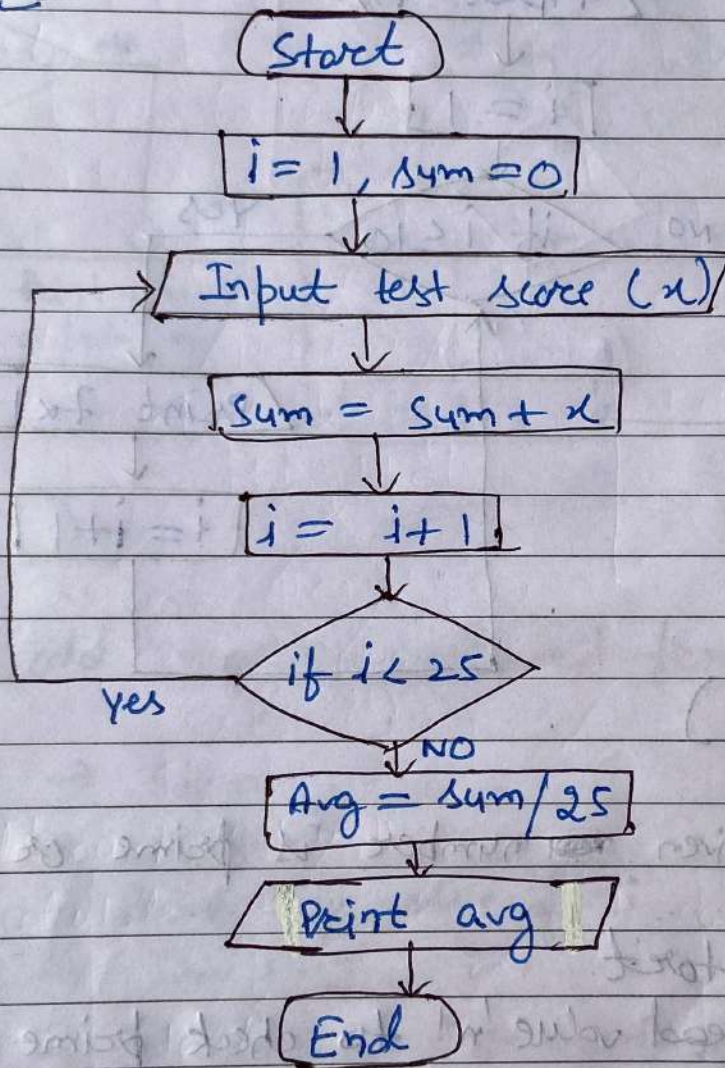 Start
i = 1, sum = 0
Input test score (x)
Sum = Sum + x
i = i + 1
if i < 25
yes
NO
Avg = sum / 25
Print avg
End